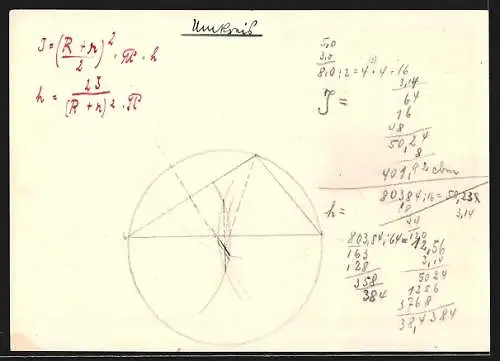 Umkreis
J = (R + r / 2)² · π · h
h = 2J / (R + r)² · π
5,0
3,0
8,0 : 2 = 4 · 4 = 16
3,14
64
16
48
50,24
8
401,92 cbm
J =
h =
80384 : 16 = 50,238
3,14
803,84 : 64 = 12,56
163
128
358
384
3,14
5024
1256
3768
38,4384